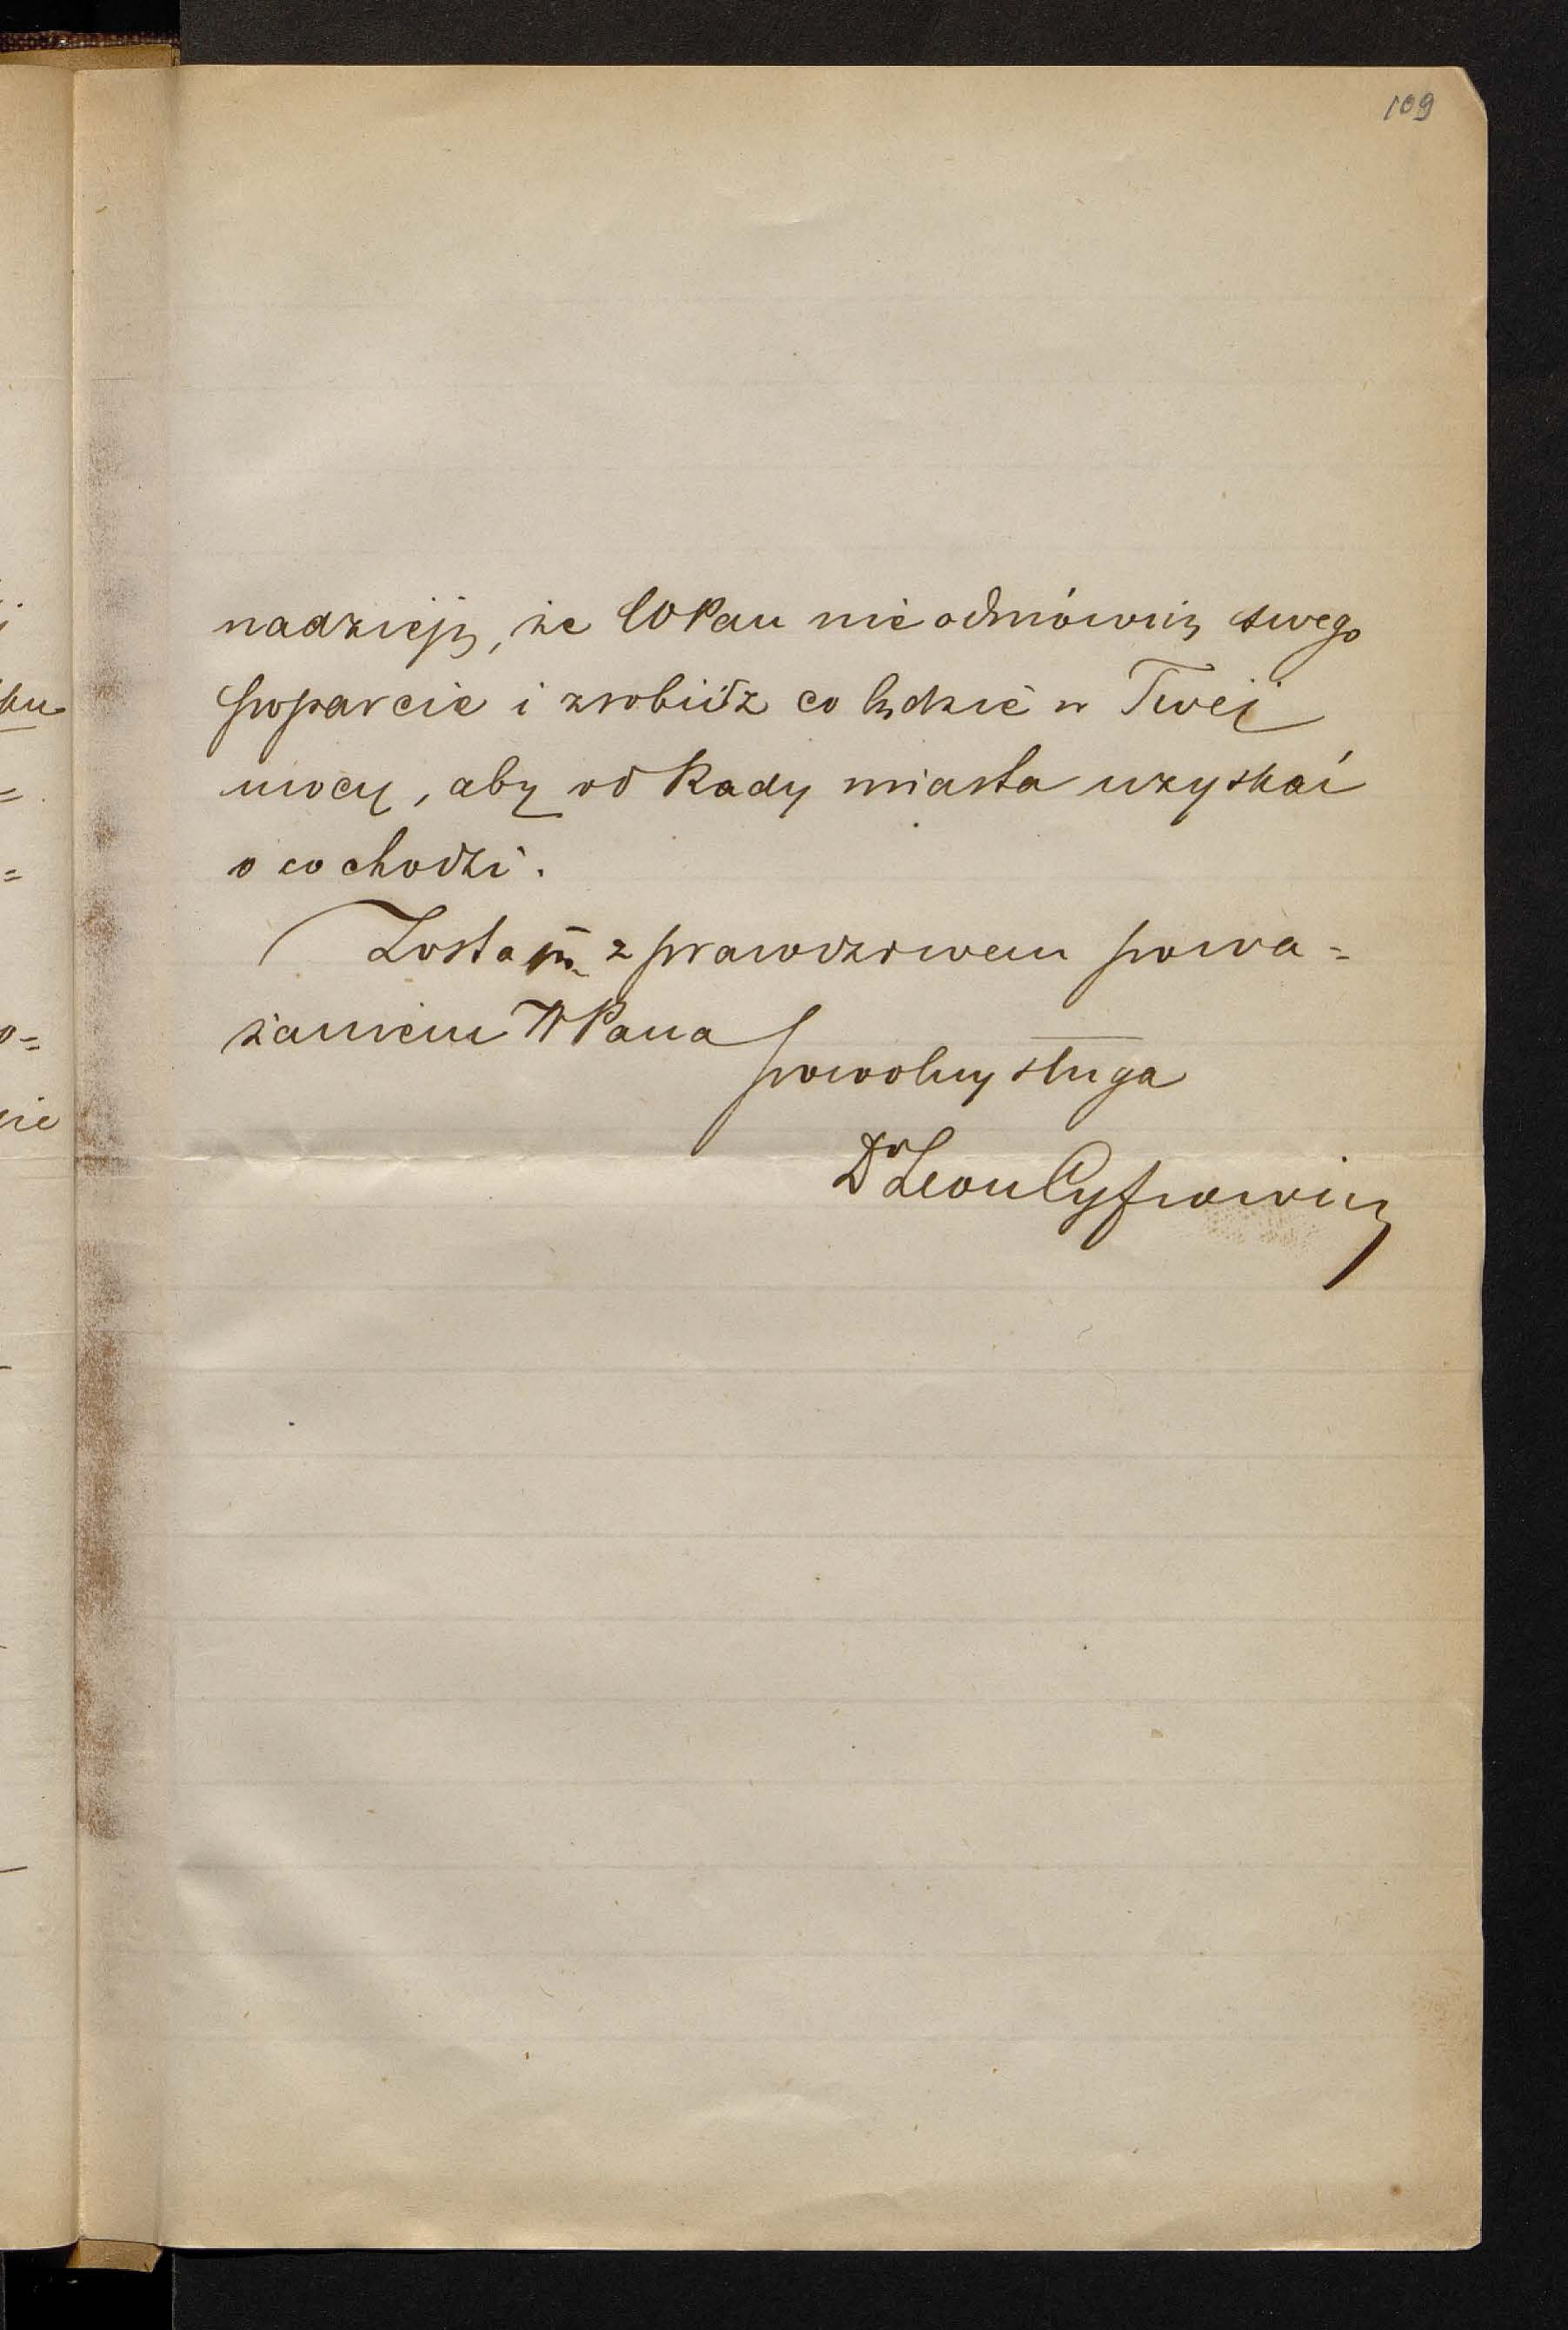 109
nadzieję, że WPan nie odmówisz swego
poparcie i zrobisz co będzie w Twej
mocy, aby od Rady miasta uzyskać
o co chodzi.
Zostaję z prawdziwem powa=
żaniem WPana
powolny sługa
Dr Leon Cyfrowicz